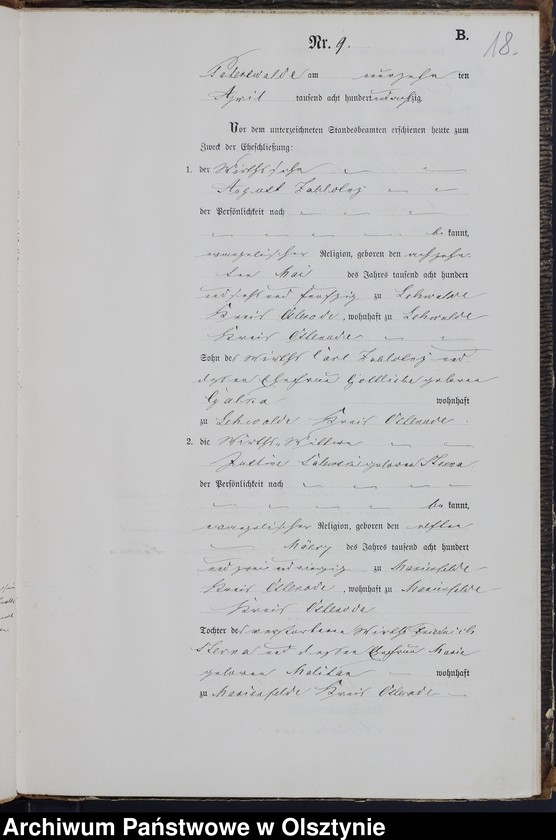 B.
18.
Nr. 9.
Peterswalde am ten
April tausend acht hundert undachtzig.
Vor dem unterzeichneten Standesbeamten erschienen heute zum
Zweck der Eheschließung:
1. der Wirthssohn
August
der Persönlichkeit nach
be kannt,
evangelischer Religion, geboren den achtzehn
ten Mai des Jahres tausend acht hundert
und fünfzig zu Lehwalde
Kreis Osterode, wohnhaft zu Lehwalde
Kreis Osterode
Sohn des Wirths Carl und
dessen Ehefrau Gottliebe geborene
wohnhaft
zu Lehwalde Kreis Osterode.
2. die Wirths-Wittwe
Justine geborene Sterna
der Persönlichkeit nach
be kannt,
evangelischer Religion, geboren den elften
März des Jahres tausend acht hundert
und vierzig zu Marienfelde
Kreis Osterode, wohnhaft zu Marienfelde
Kreis Osterode
Tochter des verstorbenen Wirths Friedrich
Sterna und dessen Ehefrau Marie
geborene wohnhaft
zu Marienfelde Kreis Osterode
Archiwum Państwowe w Olsztynie